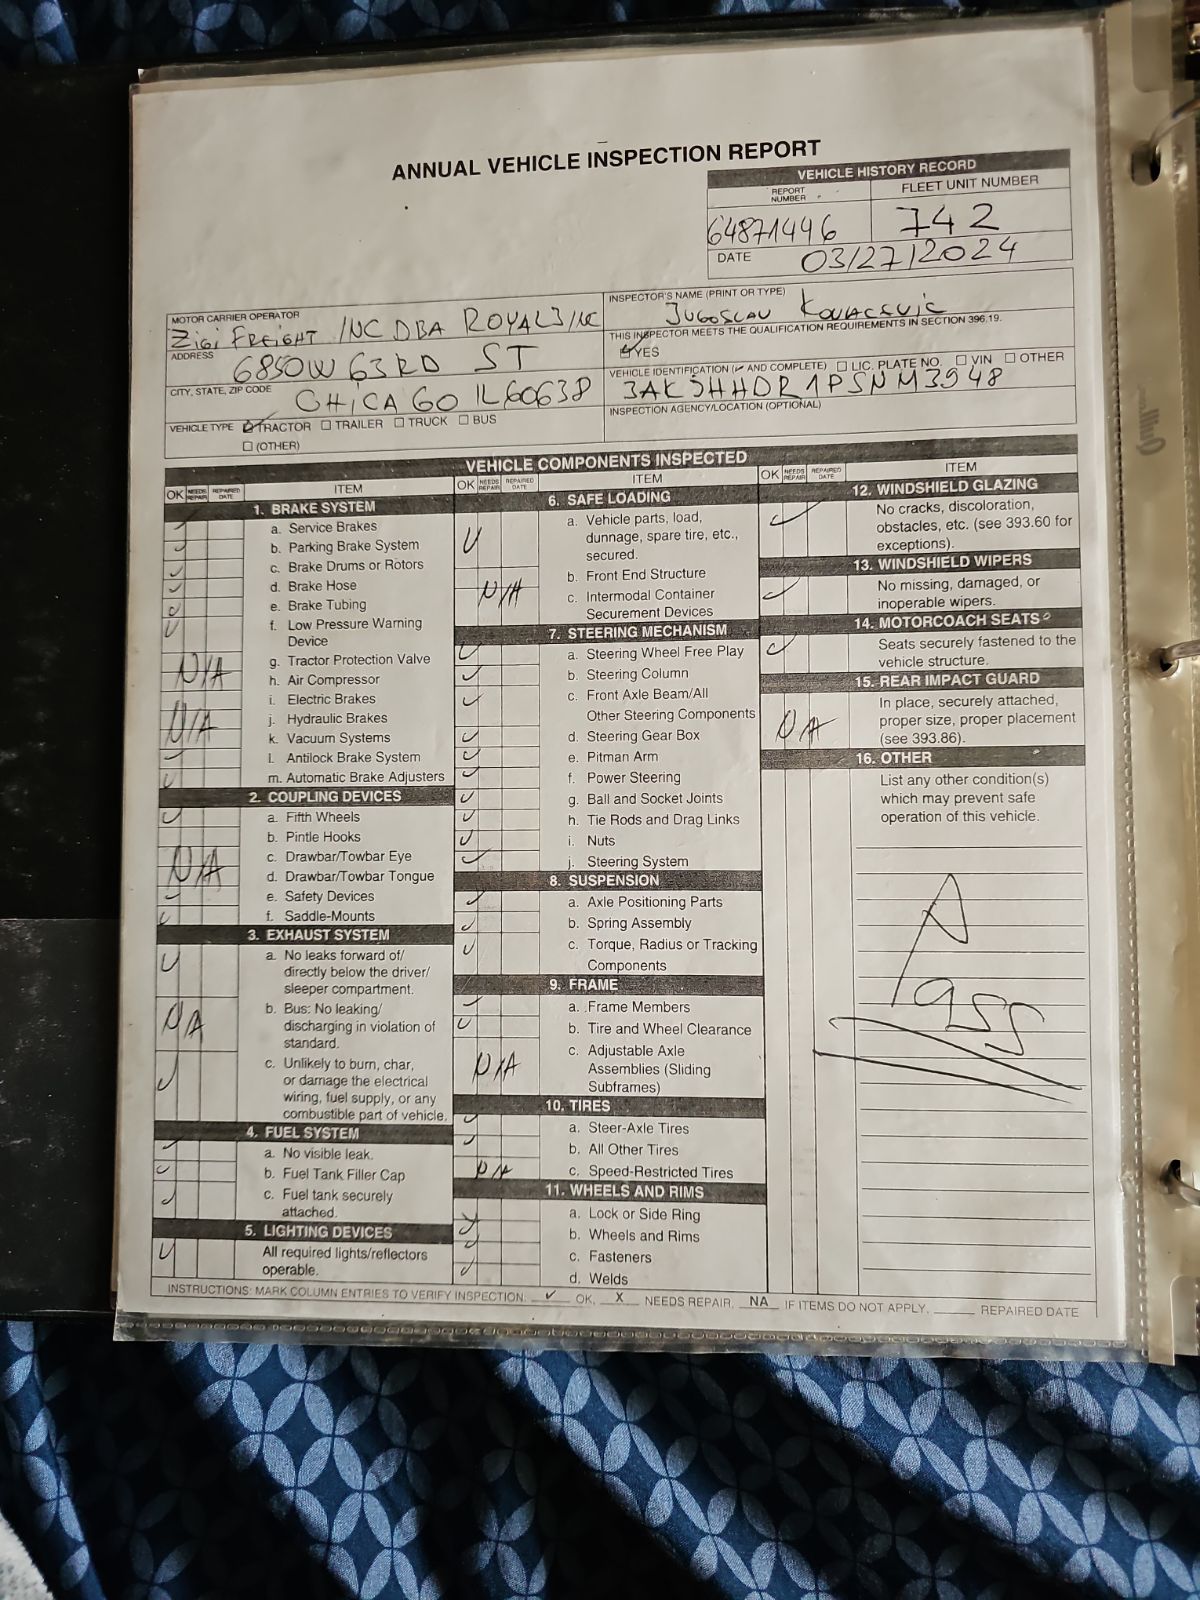 ANNUAL VEHICLE INSPECTION REPORT
VEHICLE HISTORY RECORD
REPORT NUMBER
FLEET UNIT NUMBER
64871446
742
DATE 03/27/2024
MOTOR CARRIER OPERATOR
Zigi FREIGHT INC DBA ROYAL3 INC
ADDRESS
6850W 63RD ST
CITY, STATE, ZIP CODE
CHICAGO IL 60638
VEHICLE TYPE ☑ TRACTOR ☐ TRAILER ☐ TRUCK ☐ BUS
☐ (OTHER)
INSPECTOR'S NAME (PRINT OR TYPE)
JUGOSLAV
THIS INSPECTOR MEETS THE QUALIFICATION REQUIREMENTS IN SECTION 396.19.
☑ YES
VEHICLE IDENTIFICATION (✓ AND COMPLETE) ☐ LIC. PLATE NO. ☐ VIN ☐ OTHER
INSPECTION AGENCY/LOCATION (OPTIONAL)
VEHICLE COMPONENTS INSPECTED
OK NEEDS REPAIR REPAIRED DATE ITEM
1. BRAKE SYSTEM
a. Service Brakes
b. Parking Brake System
c. Brake Drums or Rotors
d. Brake Hose
e. Brake Tubing
f. Low Pressure Warning
Device
g. Tractor Protection Valve
N/A
h. Air Compressor
i. Electric Brakes
j. Hydraulic Brakes
N/A
k. Vacuum Systems
l. Antilock Brake System
m. Automatic Brake Adjusters
2. COUPLING DEVICES
a. Fifth Wheels
b. Pintle Hooks
c. Drawbar/Towbar Eye
N/A
d. Drawbar/Towbar Tongue
e. Safety Devices
f. Saddle-Mounts
3. EXHAUST SYSTEM
a. No leaks forward of/
directly below the driver/
sleeper compartment.
b. Bus: No leaking/
N/A discharging in violation of
standard.
c. Unlikely to burn, char,
or damage the electrical
wiring, fuel supply, or any
combustible part of vehicle.
4. FUEL SYSTEM
a. No visible leak.
b. Fuel Tank Filler Cap
c. Fuel tank securely
attached.
5. LIGHTING DEVICES
All required lights/reflectors
operable.
OK NEEDS REPAIR REPAIRED DATE ITEM
6. SAFE LOADING
a. Vehicle parts, load,
dunnage, spare tire, etc.,
secured.
b. Front End Structure
N/A c. Intermodal Container
Securement Devices
7. STEERING MECHANISM
a. Steering Wheel Free Play
b. Steering Column
c. Front Axle Beam/All
Other Steering Components
d. Steering Gear Box
e. Pitman Arm
f. Power Steering
g. Ball and Socket Joints
h. Tie Rods and Drag Links
i. Nuts
j. Steering System
8. SUSPENSION
a. Axle Positioning Parts
b. Spring Assembly
c. Torque, Radius or Tracking
Components
9. FRAME
a. Frame Members
b. Tire and Wheel Clearance
c. Adjustable Axle
N/A Assemblies (Sliding
Subframes)
10. TIRES
a. Steer-Axle Tires
b. All Other Tires
N/A c. Speed-Restricted Tires
11. WHEELS AND RIMS
a. Lock or Side Ring
b. Wheels and Rims
c. Fasteners
d. Welds
OK NEEDS REPAIR REPAIRED DATE ITEM
12. WINDSHIELD GLAZING
No cracks, discoloration,
obstacles, etc. (see 393.60 for
exceptions).
13. WINDSHIELD WIPERS
No missing, damaged, or
inoperable wipers.
14. MOTORCOACH SEATS
Seats securely fastened to the
vehicle structure.
15. REAR IMPACT GUARD
In place, securely attached,
NA proper size, proper placement
(see 393.86).
16. OTHER
List any other condition(s)
which may prevent safe
operation of this vehicle.
Pass
INSTRUCTIONS: MARK COLUMN ENTRIES TO VERIFY INSPECTION: ✓ OK, X NEEDS REPAIR, NA IF ITEMS DO NOT APPLY, ____ REPAIRED DATE